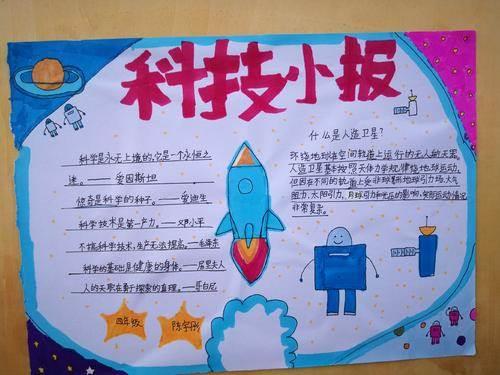 科技小报
科学是永无止境的,它是一个永恒之
迷。——爱因斯坦
惊奇是科学的种子。——爱迪生
科学技术是第一产力。——邓小平
不搞科学技术,生产无法提高。—毛泽东
科学的基础是健康的身体。——居里夫人
人的天职在勇于探索的真理。——哥白尼
四年级
什么是人造卫星?
环绕地球在空间轨道上运行的无人航天器。
人造卫星基本按照天体力学规律绕地球运动,
但因在不同的轨道上受非球形地球引力场、大气
阻力、太阳引力、月球引力和光压的影响,实际运动情况
非常复杂。